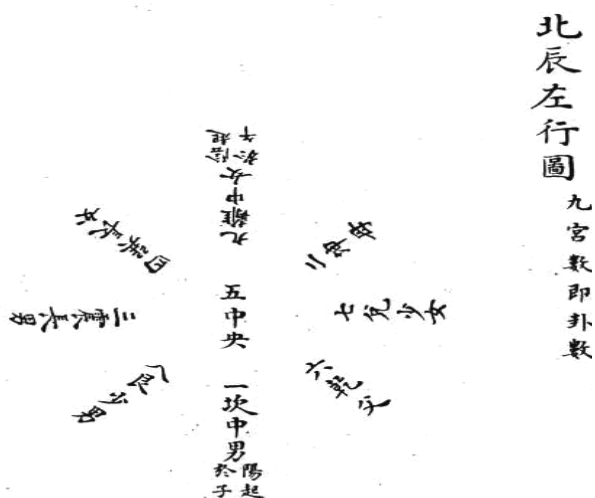 北辰左行圖
九宮數即卦數
九離中女
陰起
於午
二坤母
七兌少女
六乾父
一坎中男
陽起
於子
八艮少男
三震長男
四巽長女
五中央